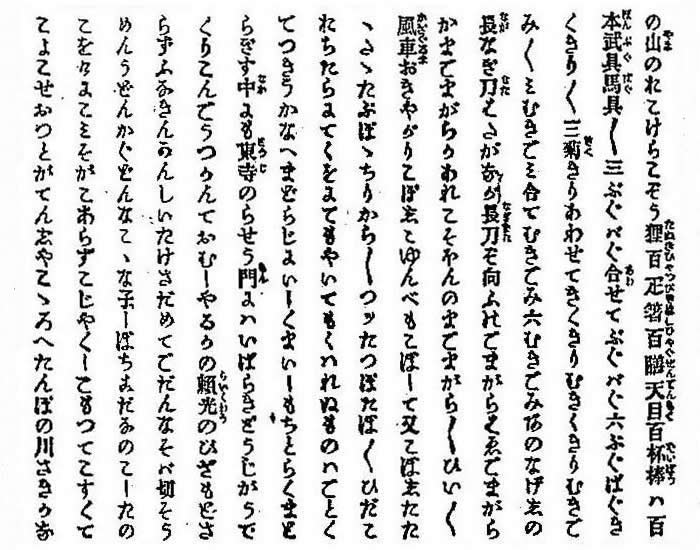 の山のれこけらこぞう狸百疋箸百膳天目百杯棒八百
本武具馬具〳〵三ぶぐバぐ合せてぶぐバぐ六ぶぐばぐき
くきり〳〵三菊きりあわせてきくきりむきくきりむきご
み〳〵三むきごミ合てむきごみ六むきごみあのなげしの
長なぎ刀ハたがなが長刀ぞ向ふのごまがらハゑごまがら
かまごまがらかあれこそほんのまごまがら〳〵ひい〳〵
風車おきやがりこぼしこゆんべもこぼして又こぼしたた
〻たゝたぷぽゝちりから〳〵つッたつぽたぽ〳〵ひだこ
れちたらまてくをまてもやいてもくハれぬものハごとく
てつきうかなくまどうじにいしくまいしもちとらくまと
らぎす中にも東寺のらせう門にハいばらきどうじがうで
くりこんでうつかんておむしやるかの頼光のひざもとさ
らずふなきんかんしいたけさだめてごだんなそバ切そう
めんうどんかぐどんなこゝな子しぼちまだあのこしたの
こをけにこミそがこあらずこじやくしこもつてこすくて
こよこせおつとがてんしやこゝろへたんぼの川さきかな